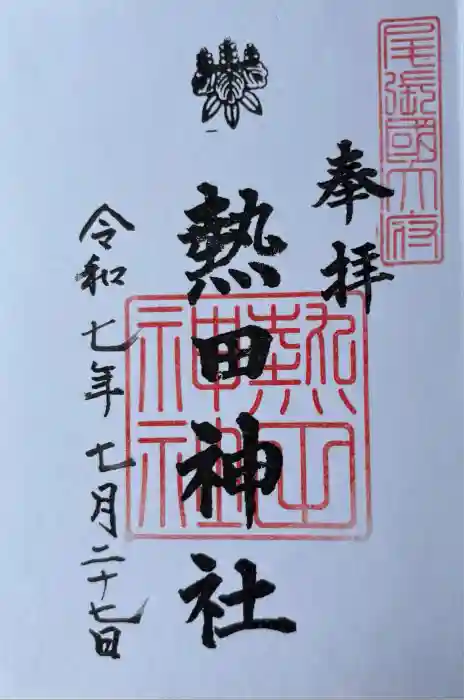 尾張國六府
奉拝
熱田神社
熱田神社
令和七年七月二十七日